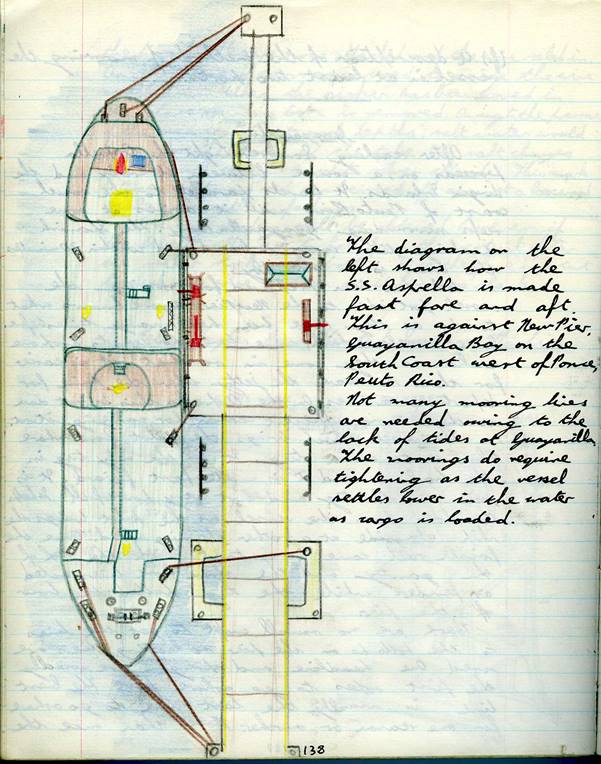 The diagram on the
left shows how the
S.S. Aspella is made
fast fore and aft
This is against New Pier,
Guayanilla Bay on the
South Coast west of Ponce,
Peuto Rico.
Not many mooring lines
are needed owing to the
lack of tides at Guayanilla
The moorings do require
tightening as the vessel
settles lower in the water
as cargo is loaded.
138